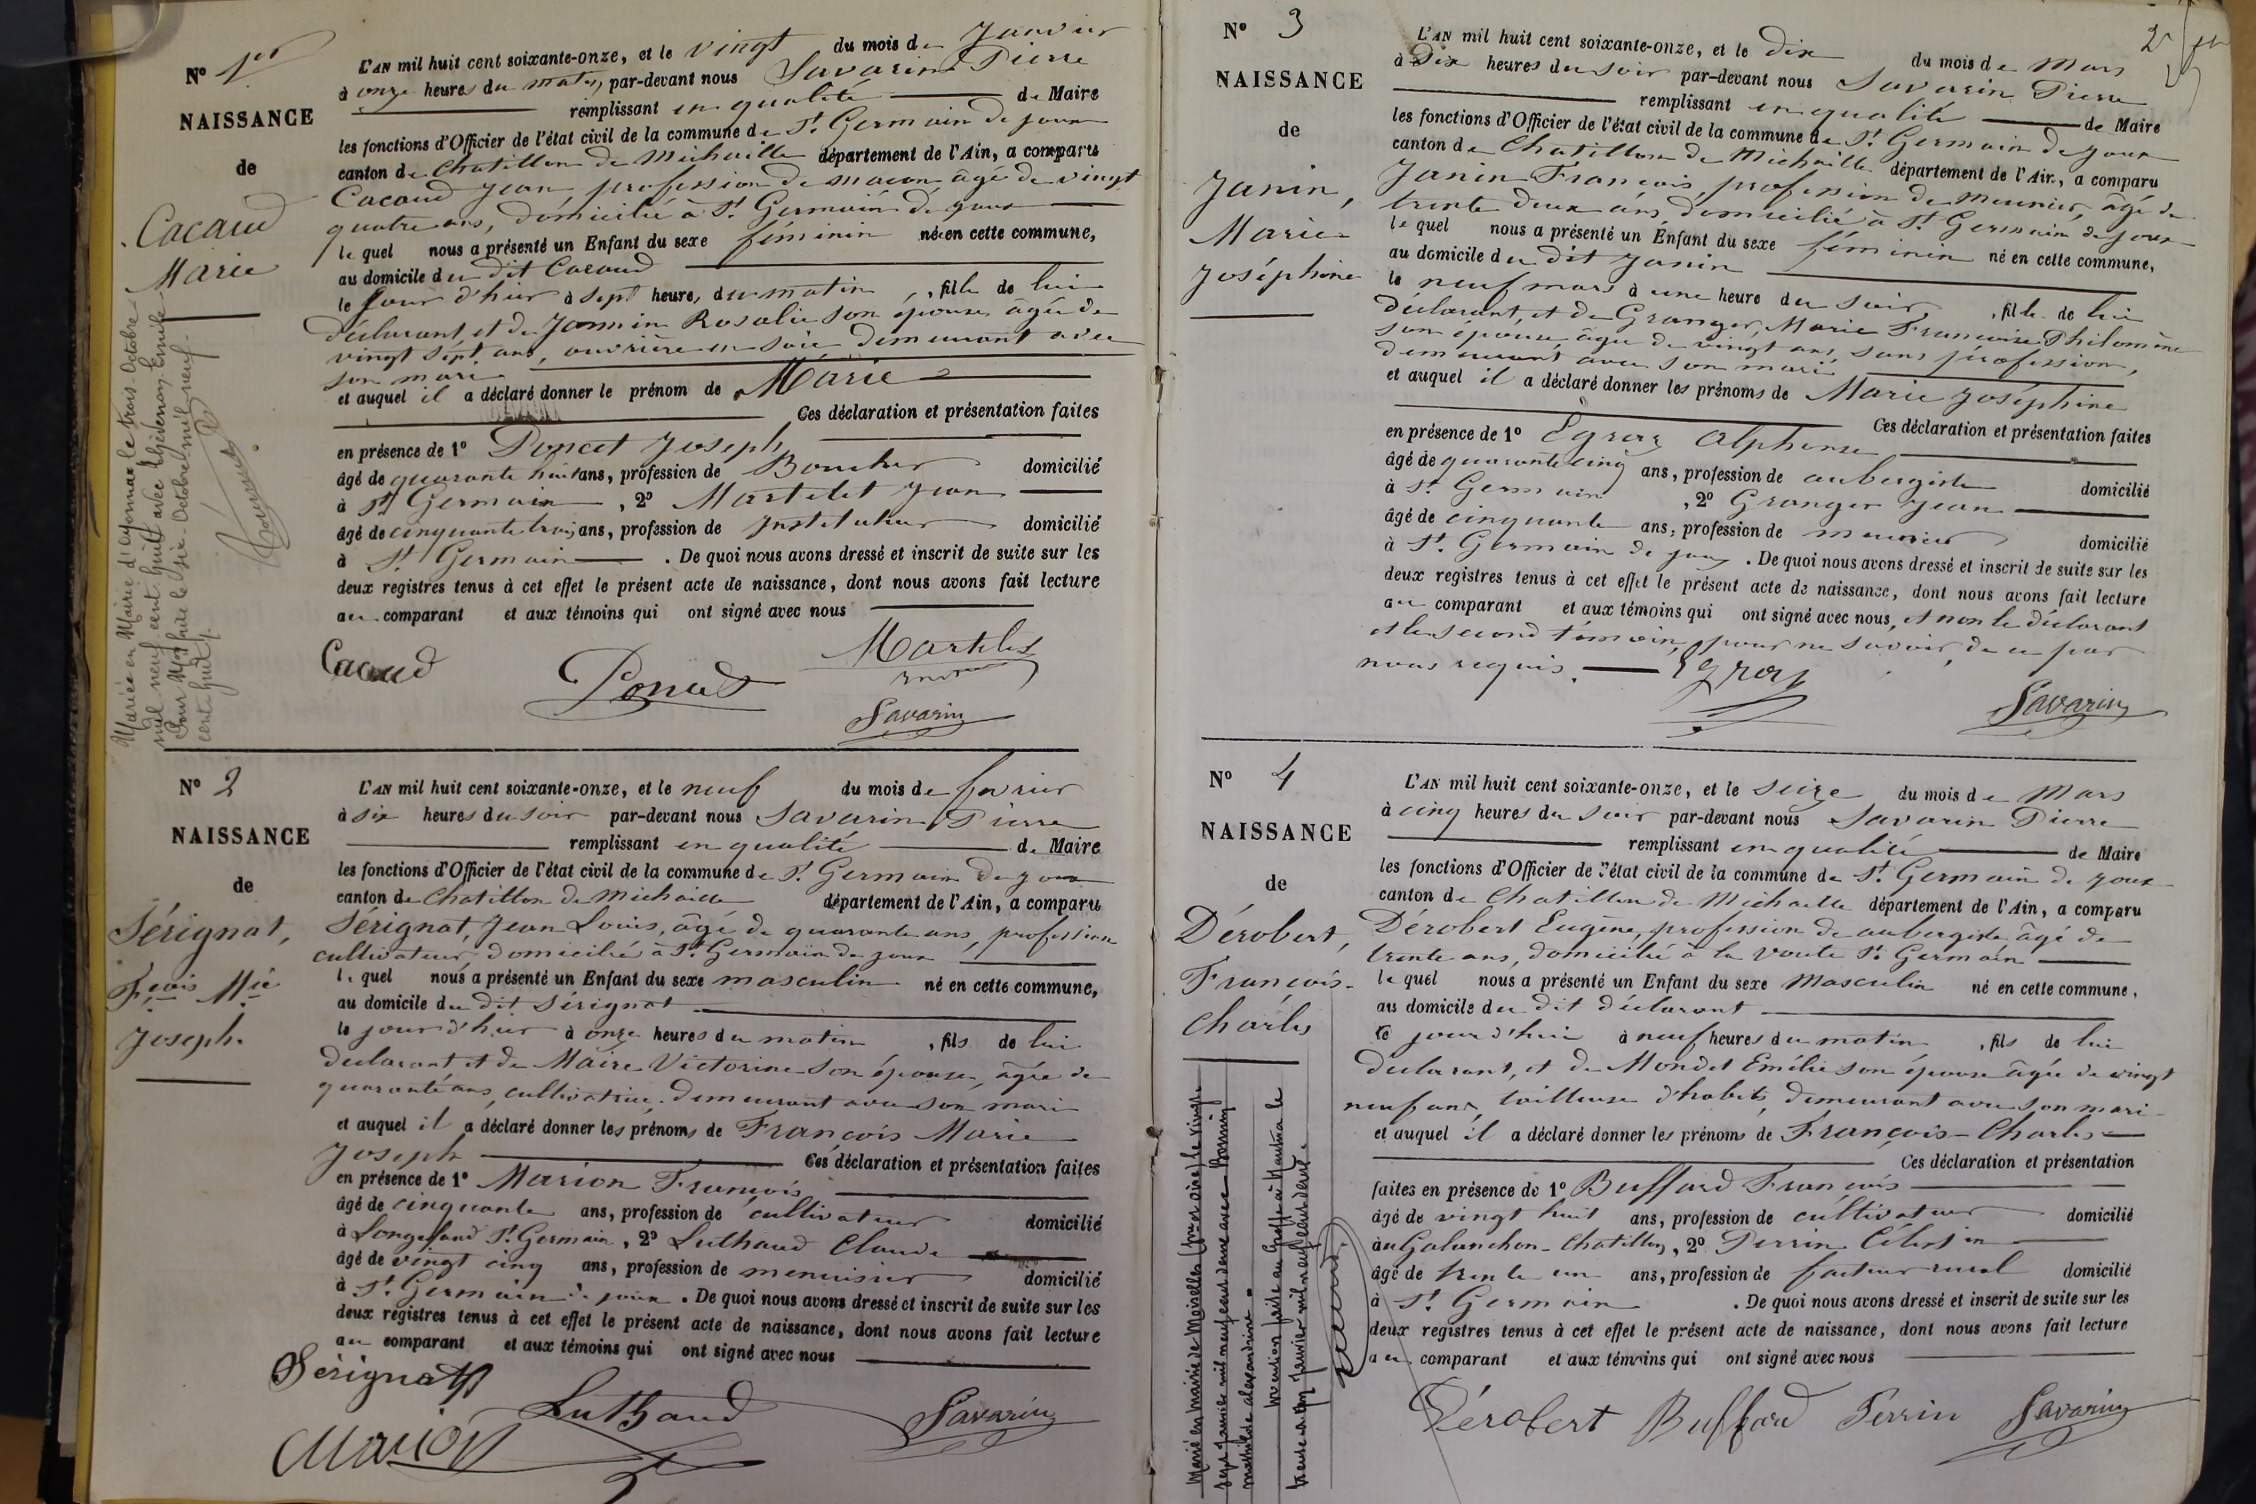 N° 1er
NAISSANCE
de
Cacaud
Marie
Mariée en Mairie d'Oyonnax le trois Octobre
mil neuf cent huit avec Thévenon Emile
cent huit.
L'AN mil huit cent soixante-onze, et le vingt du mois de Janvier
à onze heures du matin, par-devant nous Savarin Pierre
remplissant en qualité de Maire
les fonctions d'Officier de l'état civil de la commune de St Germain de joux
canton de Chatillon de Michaille département de l'Ain, a comparu
Cacaud Jean profession de maçon âgé de vingt
quatre ans, domicilié à St Germain de joux
le quel nous a présenté un Enfant du sexe féminin née en cette commune,
au domicile du dit Cacaud
le jour d'hier à sept heure, du matin, fille de lui
déclarant, et de Rosalie son épouse âgée de
vingt sept ans, ouvrière en soie, demeurant avec
son mari
et auquel il a déclaré donner le prénom de Marie
Ces déclaration et présentation faites
en présence de 1° Poncet Joseph
âgé de quarante huit ans, profession de Boucher domicilié
à St Germain, 2° Martelet Jean
âgé de cinquante trois ans, profession de Instituteur domicilié
à St Germain. De quoi nous avons dressé et inscrit de suite sur les
deux registres tenus à cet effet le présent acte de naissance, dont nous avons fait lecture
au comparant et aux témoins qui ont signé avec nous
Cacaud Poncet Martelet
Savarin
N° 2
NAISSANCE
de
Sérignat,
Fçois Mie
Joseph.
L'AN mil huit cent soixante-onze, et le neuf du mois de fevrier
à six heures du soir par-devant nous Savarin Pierre
remplissant en qualité de Maire
les fonctions d'Officier de l'état civil de la commune de St Germain de joux
canton de Chatillon de Michaille département de l'Ain, a comparu
Sérignat, Jean Louis, âgé de quarante ans, profession
cultivateur, domicilié à St Germain de joux
le quel nous a présenté un Enfant du sexe masculin né en cette commune,
au domicile du dit Sérignat
le jour d'hui à onze heures du matin, fils de lui
declarant, et de Maire Victorine son épouse, âgée de
quarante ans, cultivatrice, demeurant avec son mari
et auquel il a déclaré donner les prénoms de François Marie
Joseph Ces déclaration et présentation faites
en présence de 1° Marion François
âgé de cinquante ans, profession de cultivateur domicilié
à Longefand St Germain, 2° Luthaud Claude
âgé de vingt cinq ans, profession de menuisier domicilié
à St Germain de joux. De quoi nous avons dressé et inscrit de suite sur les
deux registres tenus à cet effet le présent acte de naissance, dont nous avons fait lecture
au comparant et aux témoins qui ont signé avec nous
Sérignat
Luthaud Savarin
Marion
2
N° 3
NAISSANCE
de
Janin,
Marie
Joséphine
L'AN mil huit cent soixante-onze, et le dix du mois de Mars
à Six heures du soir par-devant nous Savarin Pierre
remplissant en qualité de Maire
les fonctions d'Officier de l'état civil de la commune de St Germain de joux
canton de Chatillon de Michaille département de l'Ain, a comparu
Janin François, profession de meunier, âgé de
trente deux ans, domicilié à St Germain de joux
le quel nous a présenté un Enfant du sexe féminin né en cette commune,
au domicile du dit Janin
le neuf mars à une heure du soir, fille de lui
déclarant, et de Granger, Marie Françoise Philomène
son épouse âgée de vingt ans, sans profession,
demeurant avec son mari
et auquel il a déclaré donner les prénoms de Marie Joséphine
Ces déclaration et présentation faites
en présence de 1° Egraz Alphonse
âgé de quarante cinq ans, profession de aubergiste domicilié
à St Germain, 2° Granger Jean
âgé de cinquante ans, profession de meunier domicilié
à St. Germain de joux. De quoi nous avons dressé et inscrit de suite sur les
deux registres tenus à cet effet le présent acte de naissance, dont nous avons fait lecture
au comparant et aux témoins qui ont signé avec nous, et non le déclarant
et le second témoin, pour ne savoir, de ce par
nous requis. Egraz
Savarin
N° 4
NAISSANCE
de
Dérobert,
François
Charles
Marié en mairie de Marseille le vingt
sept janvier mil neuf cent douze avec
mathilde alexandrine.
mention faite au Greffe à Nantua le
L'AN mil huit cent soixante-onze, et le seize du mois de Mars
à cinq heures du soir par-devant nous Savarin Pierre
remplissant en qualité de Maire
les fonctions d'Officier de l'état civil de la commune de St. Germain de joux
canton de Chatillon de Michaille département de l'Ain, a comparu
Dérobert Eugène, profession de aubergiste, âgé de
trente ans, domicilié à la voute St Germain
le quel nous a présenté un Enfant du sexe Masculin né en cette commune,
au domicile du dit déclarant
le jour d'hui à neuf heures du matin, fils de lui
declarant, et de Mondet Emélie son épouse âgée de vingt
neuf ans, tailleuse d'habits, demeurant avec son mari
et auquel il a déclaré donner les prénoms de François-Charles
Ces déclaration et présentation
faites en présence de 1° Buffard François
âgé de vingt huit ans, profession de cultivateur domicilié
au Galanchon-Chatillon, 2° Perrin Célestin
âgé de trente un ans, profession de facteur rural domicilié
à St. Germain. De quoi nous avons dressé et inscrit de suite sur les
deux registres tenus à cet effet le présent acte de naissance, dont nous avons fait lecture
au comparant et aux témoins qui ont signé avec nous
Dérobert Buffard Perrin Savarin